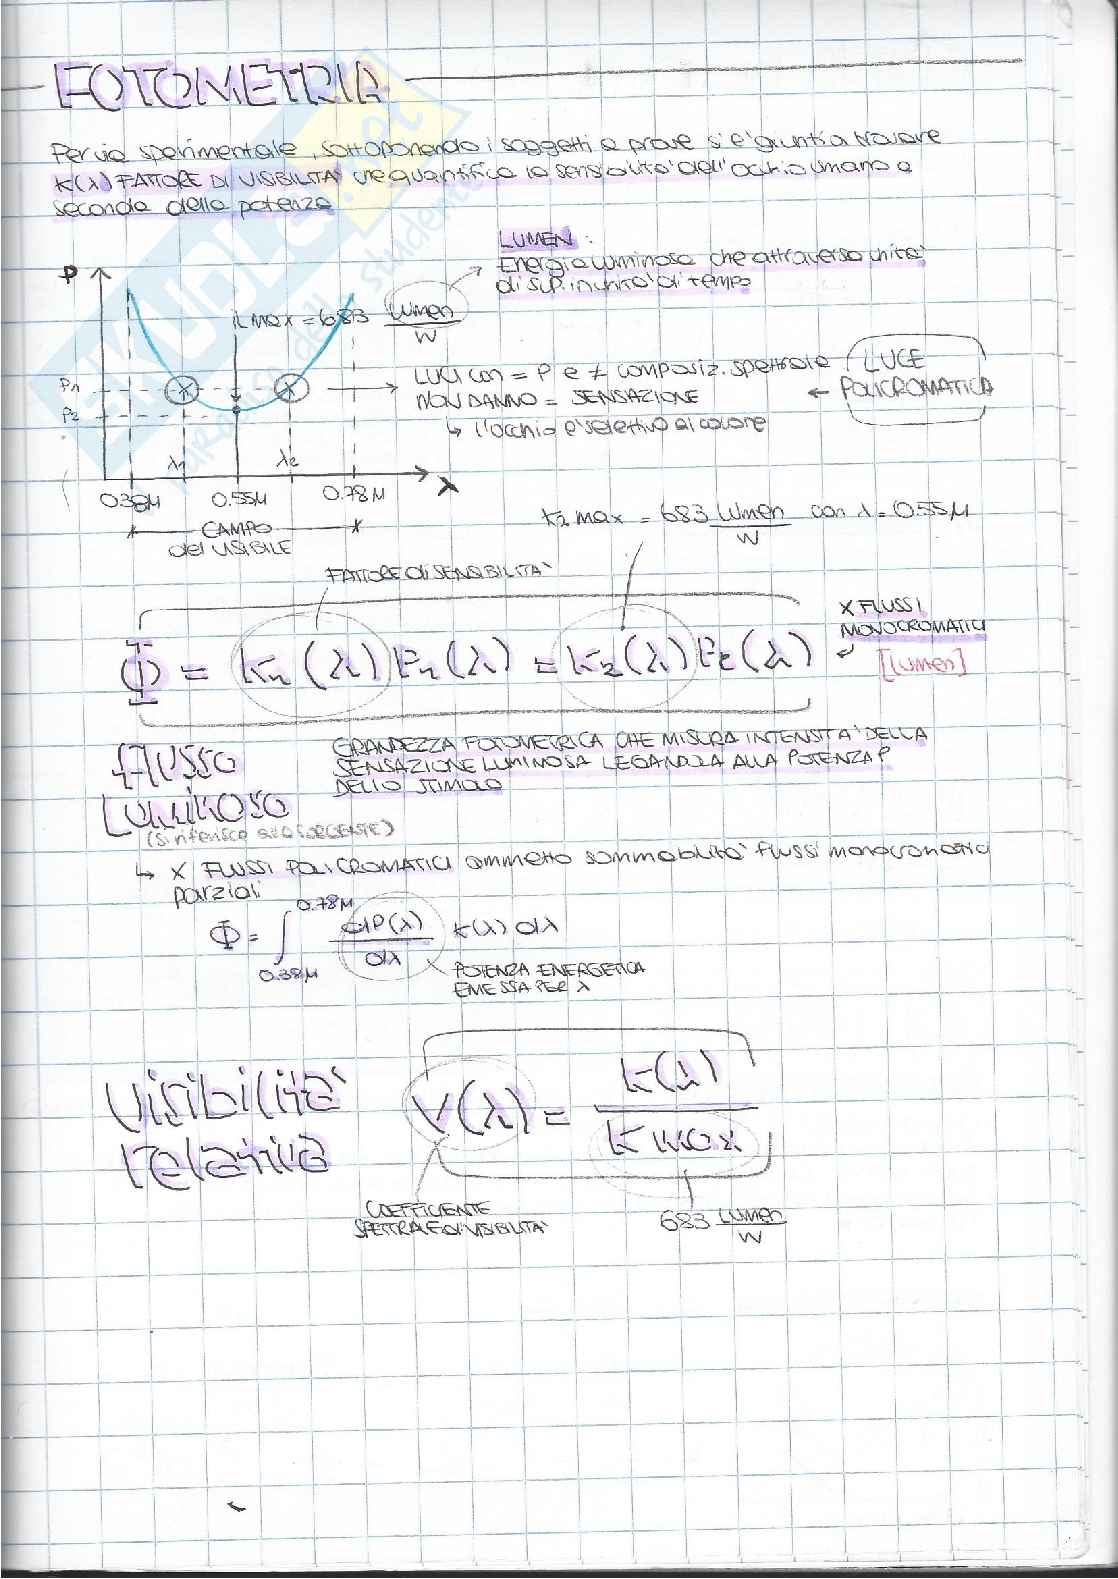 FOTOMETRIA
Per via sperimentale, sottoponendo i soggetti a prove si è giunti a trovare
K(λ) FATTORE DI VISIBILITÀ che quantifica la sensibilità dell'occhio umano a
seconda della potenza
LUMEN:
Energia luminosa che attraversa unità
di sup. in unità di tempo
P
K max = 683 lumen/W
P1
P2
LUCI con = P e ≠ composiz. spettrale
NON DANNO = SENSAZIONE
↳ l'occhio è selettivo al colore
← LUCE
POLICROMATICA
λ1
λ2
λ
0.38μ
0.55μ
0.78μ
CAMPO
del VISIBILE
K2 max = 683 lumen/W con λ = 0.55μ
FATTORE di SENSIBILITÀ
Φ = K1(λ) P1(λ) = K2(λ) P2(λ)
X FLUSSI
MONOCROMATICI
[lumen]
flusso
luminoso
(si riferisce alla SORGENTE)
GRANDEZZA FOTOMETRICA CHE MISURA INTENSITÀ DELLA
SENSAZIONE LUMINOSA LEGANDOLA ALLA POTENZA P
DELLO STIMOLO
↳ X FLUSSI POLICROMATICI ammetto sommabilità flussi monocromatici
parziali
0.78μ
Φ = ∫ dP(λ)/dλ K(λ) dλ
0.38μ
POTENZA ENERGETICA
EMESSA PER λ
visibilità
relativa
V(λ) = K(λ)/K max
COEFFICIENTE
SPETTRALE DI VISIBILITÀ
683 lumen/W